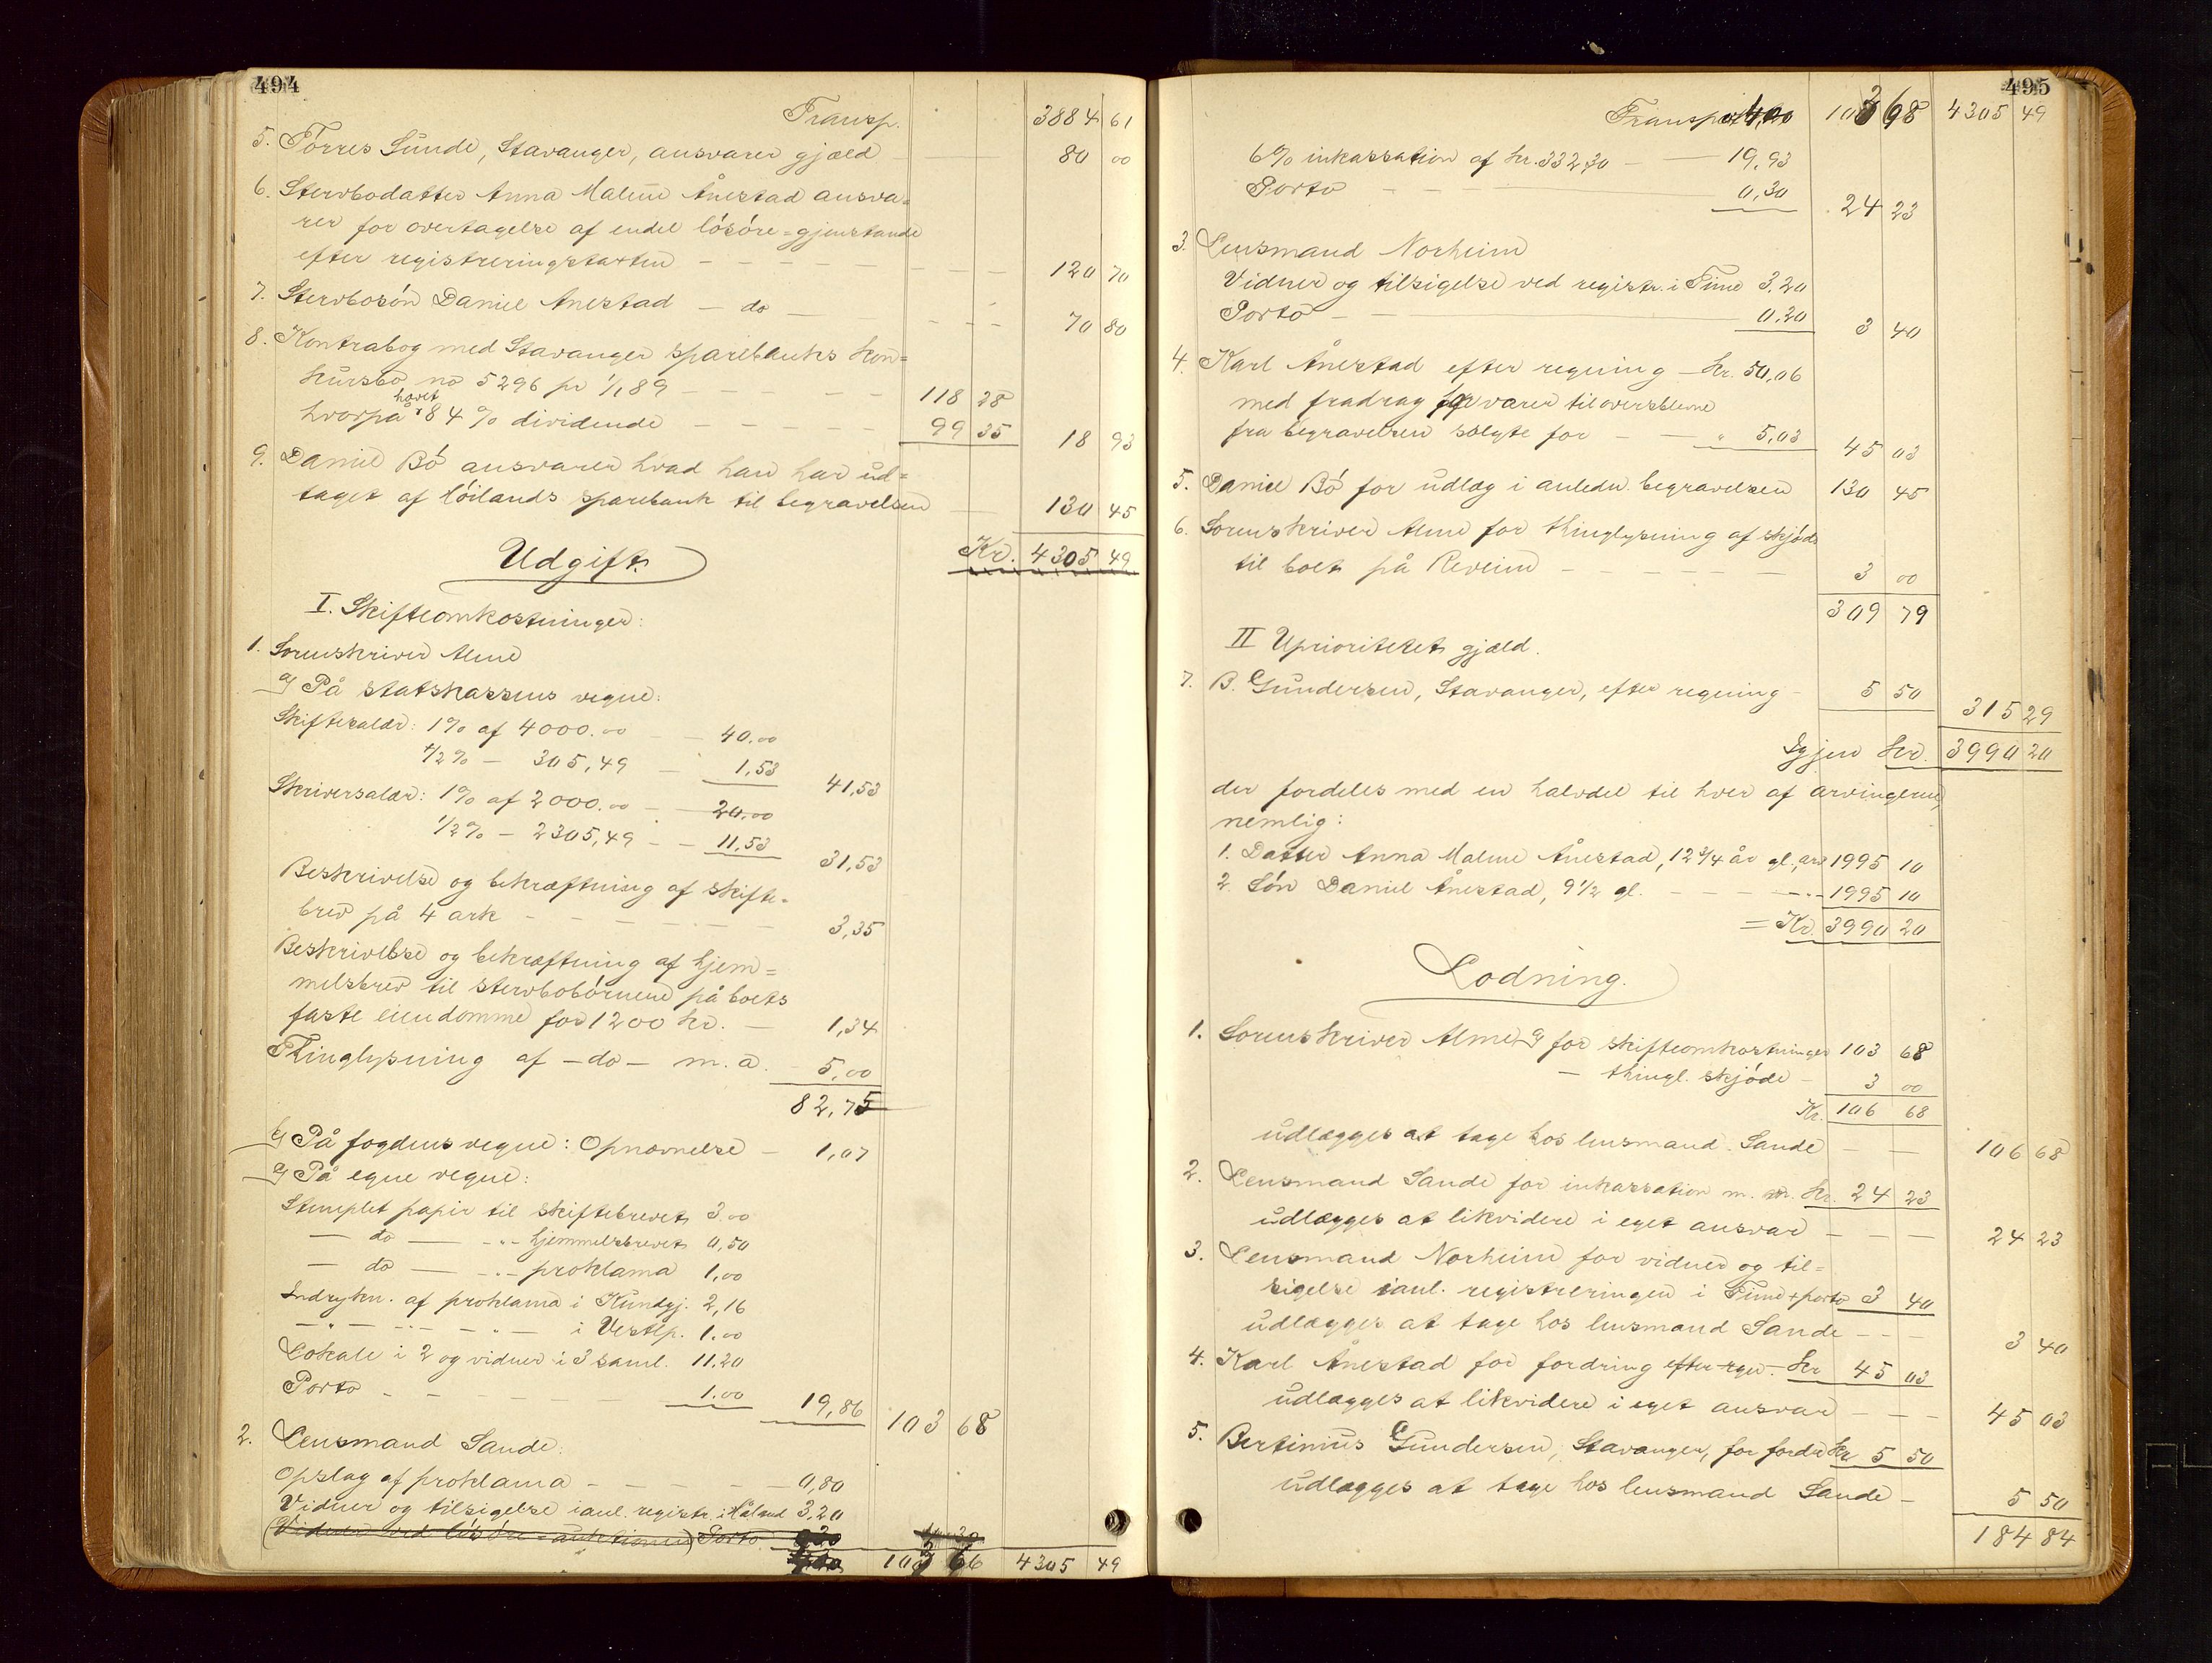 494
Transp. 3884 61
5. Torres Sunde, Stavanger, ansvarer gjæld 80 00
6. Stervbodatter Anna Maline Ånestad ansva=
rer for overtagelse af endel lösöre=gjenstande
efter registreringstaxten 120 70
7. Stervbosön Daniel Ånestad – do – 70 80
8. Kontrabog med Stavanger sparebanks kon=
kursbo no 5296 pr 1/1 89 118 28
hvorpå hævet 84 % dividende 99 35 18 93
9. Daniel Bö ansvarer hvad han har ud=
taget af Höilands sparebank til begravelsen 130 45
Kr. 4305 49
Udgift.
I. Skifteomkostninger:
1. Sorenskriver Alme
a) På statskassens vegne:
Skiftesalær: 1% af 4000.00 – 40.00
1/2% – 305,49 – 1,53 41,53
Skriversalær: 1% af 2000.00 – 20.00
1/2% – 2305,49 – 11,53 31,53
Beskrivelse og bekræftning af skifte-
brev på 4 ark 3,35
Beskrivelse og bekræftning af hjem=
melsbrev til stervbobörnene på boets
faste eiendomme for 1200 kr. – 1,34
Thinglysning af – do – m. a. 5,00
82,75
b) På fogdens vegne: Opnævnelse – 1,07
c) På egne vegne:
Stemplet papir til skiftebrevet 3.00
– do – -"- hjemmelsbrevet 0,50
– do – -"- proklama 1,00
Indrykn. af proklama i Kundgj. 2,16
– " – – " – i Vestlp. 1.00
Lokale i 2 og vidner i 3 saml. 11.20
Porto 1.00 19,86 103 68
2. Lensmand Sande:
Opslag af proklama 0,80
Vidner og tilsigelse ianl. registr. i Håland 3,20
(Vidner ved lösöre-auktionen) Porto
4305 49
495
Transport 4,00 4305 49
6% inkassation af kr. 332,30 – 19,93
Porto 0,30 24 23
3. Lensmand Norheim
Vidner og tilsigelse ved registr. i Time 3,20
Porto 0.20 3 40
4. Karl Ånestad efter regning – kr. 50,06
med fradrag for varer tiloversblevne
fra begravelsen solgte for – " 5,03 45 03
5. Daniel Bö for udlæg i anledn. begravelsen 130 45
6. Sorenskriver Alme for thinglysning af skjöde
til boet på Reveim 3 00
309 79
II Uprioriteret gjæld.
7. B. Gundersen, Stavanger, efter regning – 5 50 315 29
Igjen kr. 3990 20
der fordeles med en halvdel til hver af arvingerne,
nemlig:
1. Datter Anna Maline Ånestad, 12 3/4 år gl., arv 1995 10
2. Sön Daniel Ånestad, 9 1/2 gl. 1995 10
= Kr. 3990 20
Lodning.
1. Sorenskriver Alme for skifteomkostninger 103 68
– thingl. skjöde – 3 00
Kr. 106 68
udlægges at tage hos lensmand Sande 106 68
2. Lensmand Sande for inkassation m. m. kr. 24 23
udlægges at likvidere i eget ansvar 24 23
3. Lensmand Norheim for vidner og til=
sigelse ianl. registreringen i Time + porto 3 40
udlægges at tage hos lensmand Sande 3 40
4. Karl Ånestad for fordring efter regn. kr 45 03
udlægges at likvidere i eget ansvar 45 03
5. Bertinius Gundersen, Stavanger, for fordr. kr 5 50
udlægges at tage hos lensmand Sande – 5 50
184 84